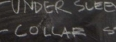 UNDER SLEE
- COLLAR S